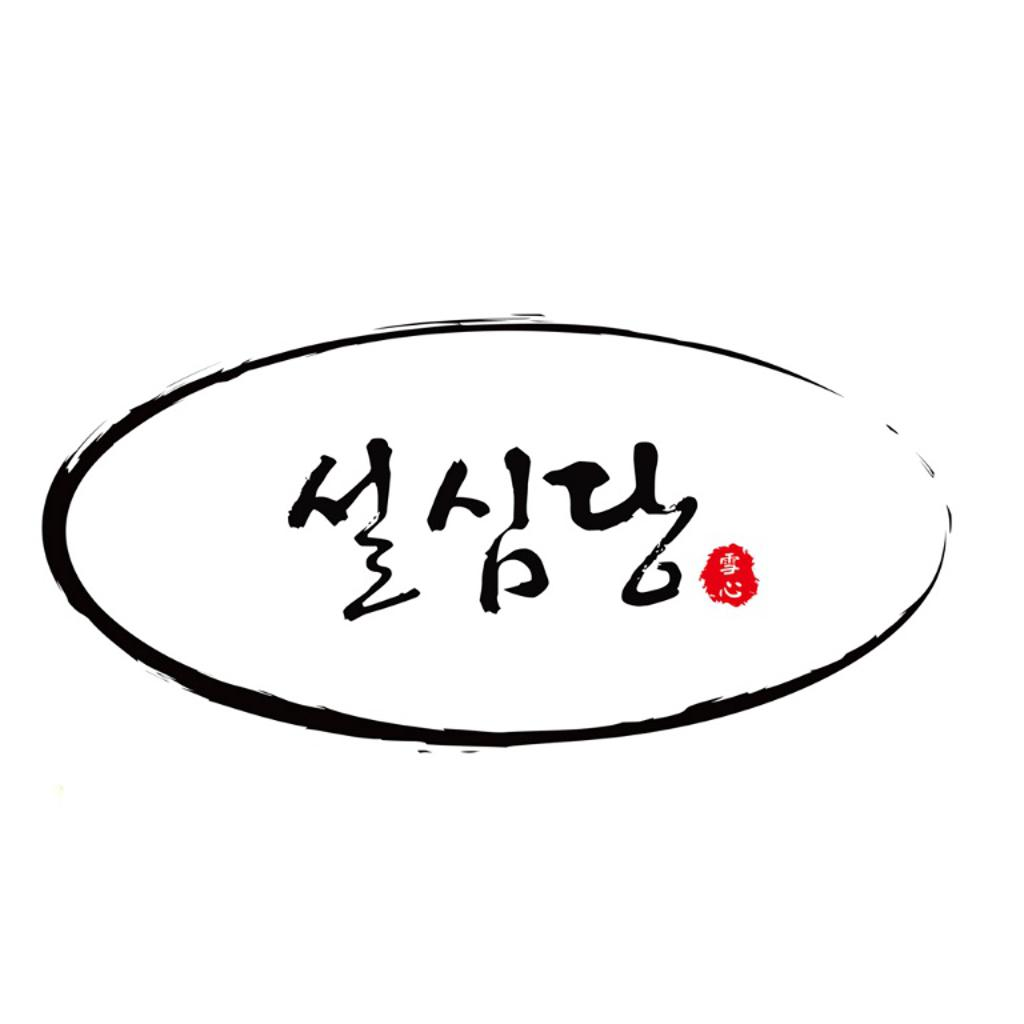 설심당
雪
心